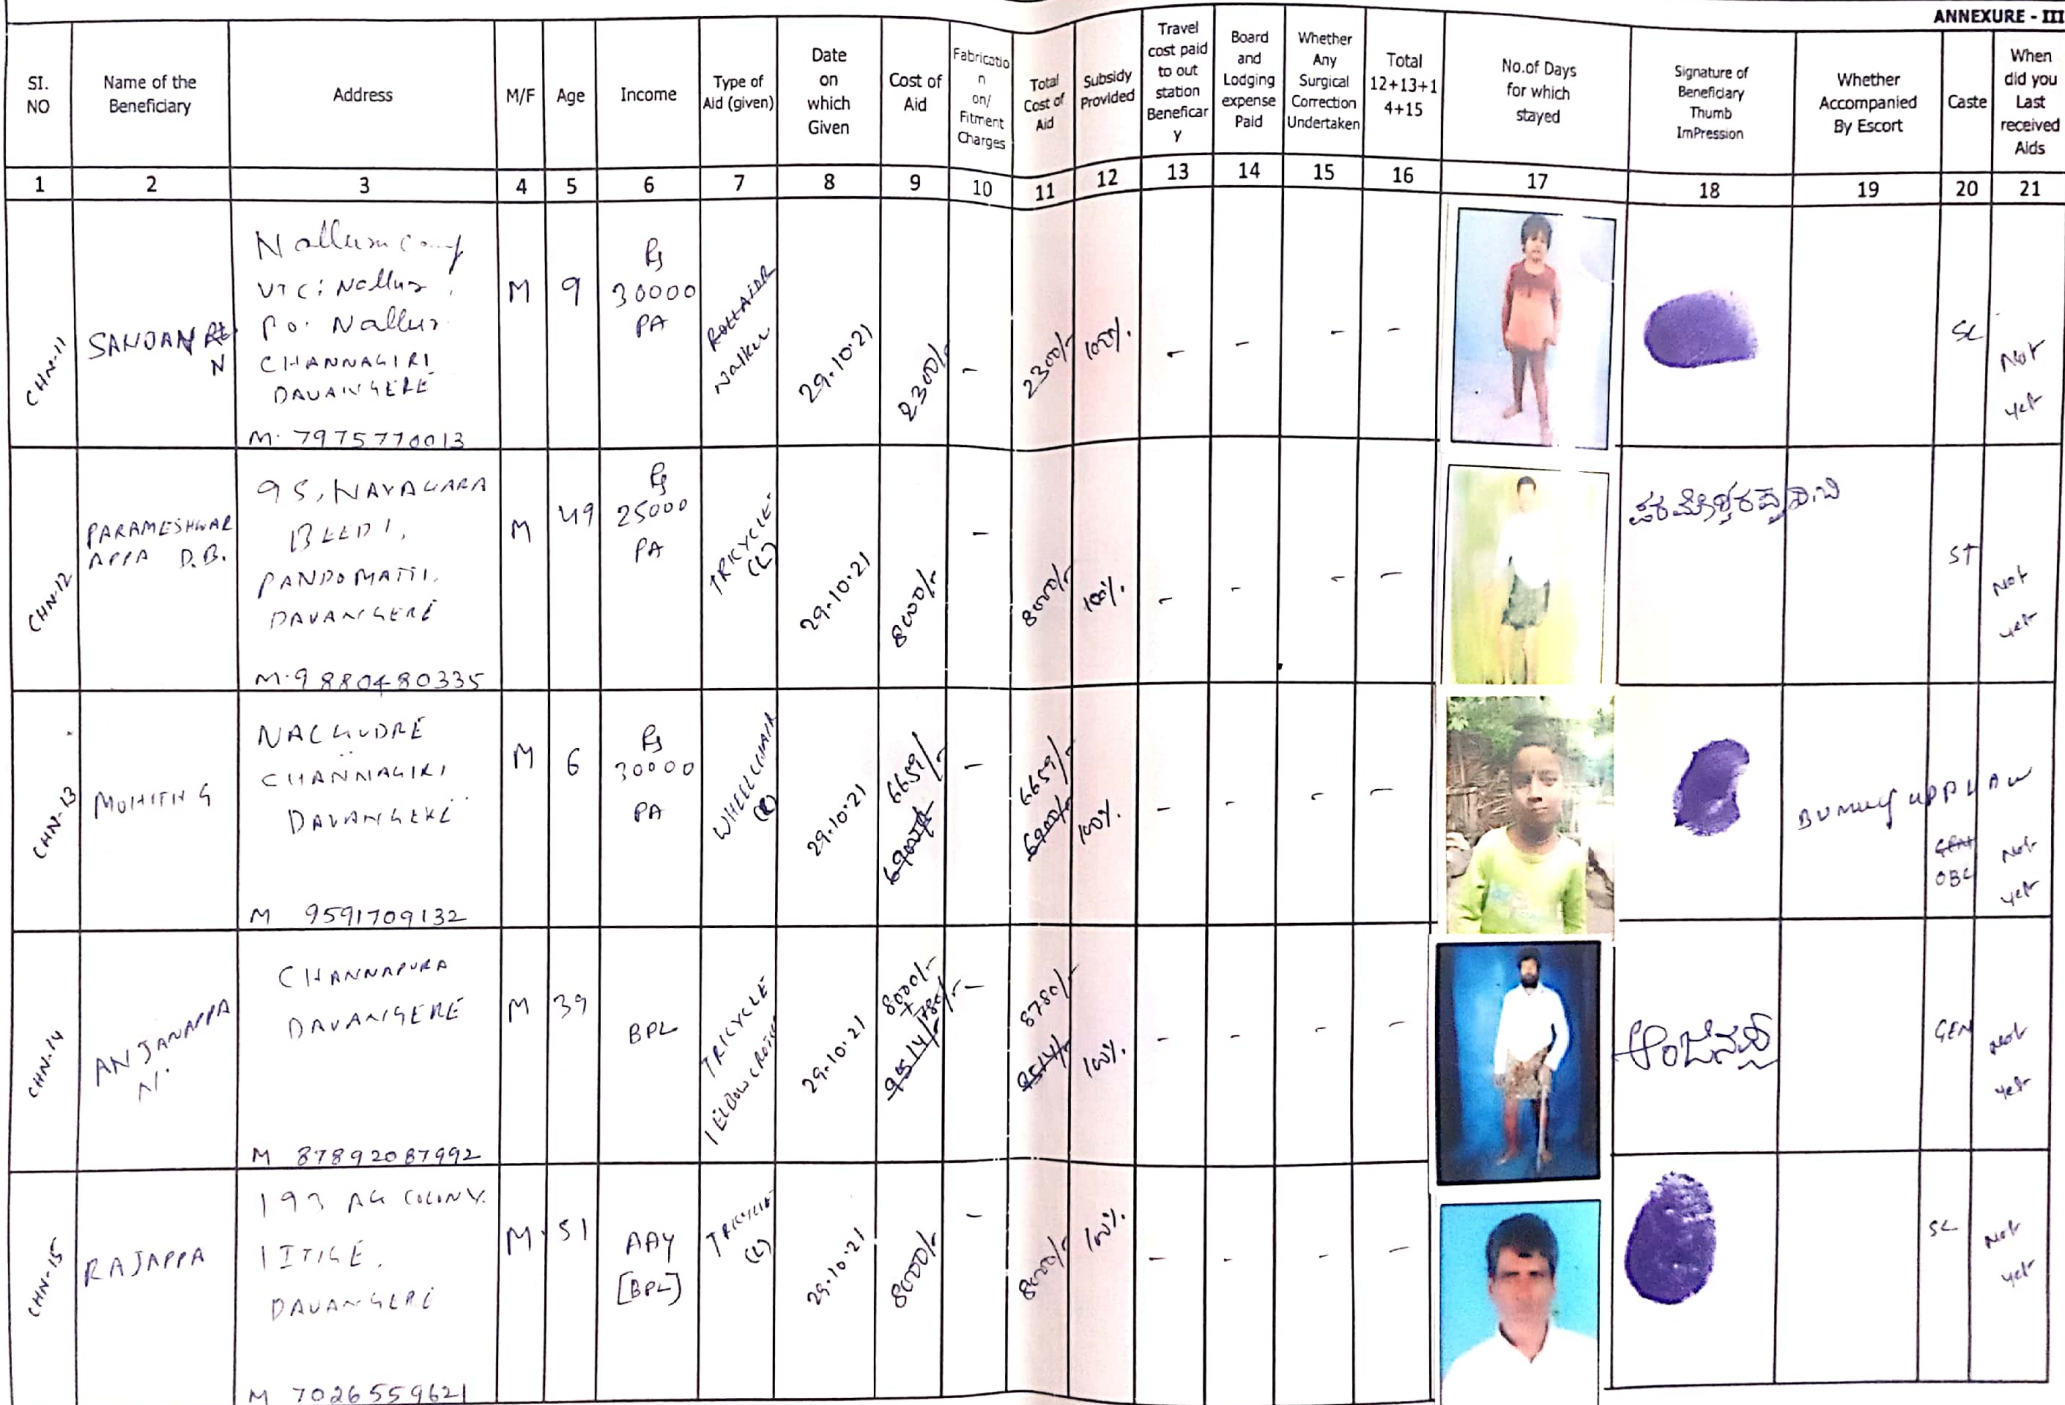 ANNEXURE - III
SI. NO
Name of the Beneficiary
Address
M/F
Age
Income
Type of Aid (given)
Date on which Given
Cost of Aid
Fabricatio n on/ Fitment Charges
Total Cost of Aid
Subsidy Provided
Travel cost paid to out station Beneficar y
Board and Lodging expense Paid
Whether Any Surgical Correction Undertaken
Total 12+13+1 4+15
No.of Days for which stayed
Signature of Beneficiary Thumb ImPression
Whether Accompanied By Escort
Caste
When did you Last received Aids
1 2 3 4 5 6 7 8 9 10 11 12 13 14 15 16 17 18 19 20 21
CHN-11
N
VTC: Nallur
Po. Nallur
CHANNAGIRI
DAVANGERE
M. 7975770013
M
9
Rs 30000 PA
29.10.21
2300/-
-
2300/-
100%.
-
-
-
-
SC
Not yet
CHN-12
PARAMESHWAR
APPA D.B.
PANDOMATTI.
DAVANGERE
M.9880480335
M
49
Rs 25000 PA
TRICYCLE (L)
29.10.21
8000/-
-
8000/-
100%.
-
-
-
-
ST
Not yet
CHN-13
MOHITH G
CHANNAGIRI
DAVANGERE
M 9591709132
M
6
Rs 30000 PA
WHEELCHAIR
29.10.21
6659/-
6900/-
-
6659/-
6900/-
100%.
-
-
-
-
GEN
OBC
Not yet
CHN-14
ANJANAPPA
N.
CHANNAPURA
DAVANGERE
M 87892087992
M
39
BPL
TRICYCLE
29.10.21
8000/-
+
780/-
9514/-
-
8780/-
9514/-
100%.
-
-
-
-
ಆಂಜನಪ್ಪ
GEN
Not yet
CHN-15
RAJAPPA
193 AK COLONY.
ITIGE.
DAVANGERE
M 7026559621
M
51
AAY
[BPL]
TRICYCLE (L)
29.10.21
8000/-
-
8000/-
100%.
-
-
-
-
SC
Not yet